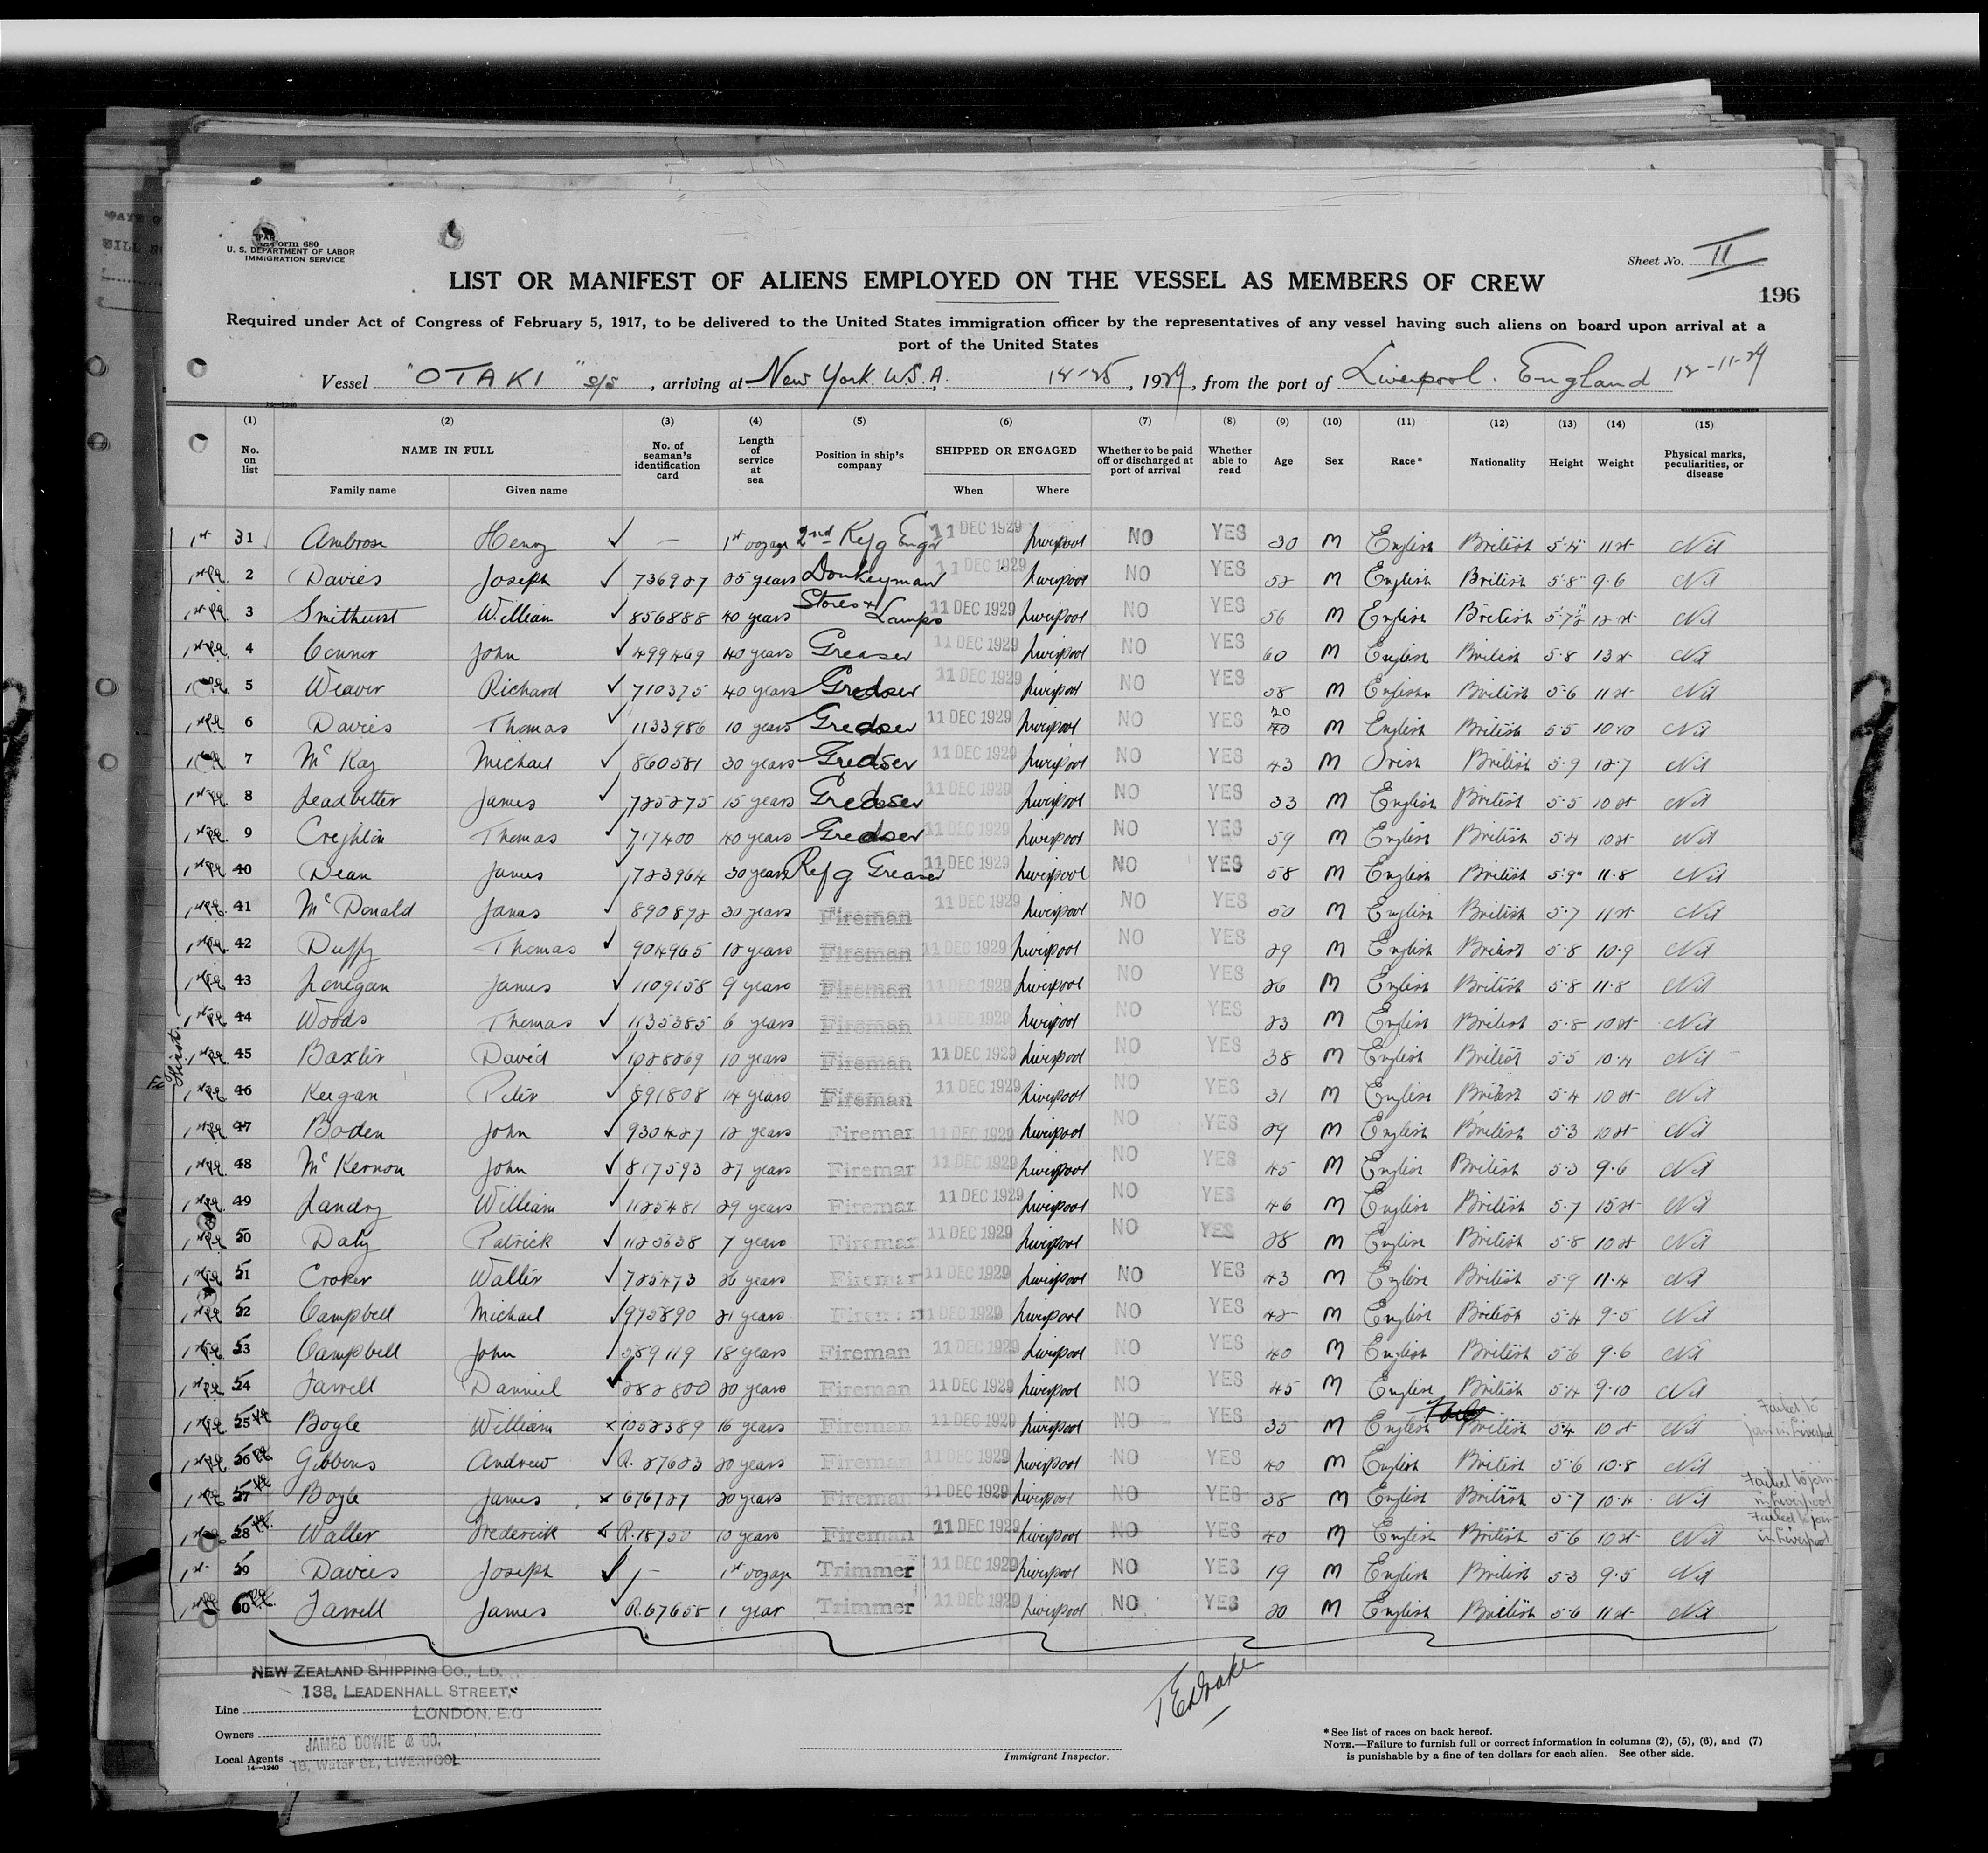 Form 680
U. S. DEPARTMENT OF LABOR
IMMIGRATION SERVICE
Sheet No. II
LIST OR MANIFEST OF ALIENS EMPLOYED ON THE VESSEL AS MEMBERS OF CREW
196
Required under Act of Congress of February 5, 1917, to be delivered to the United States immigration officer by the representatives of any vessel having such aliens on board upon arrival at a
port of the United States
Vessel "OTAKI" s/s, arriving at New York. U.S.A. 12-25, 1929, from the port of Liverpool. England 12-11-29
14—1240
(1) (2) (3) (4) (5) (6) (7) (8) (9) (10) (11) (12) (13) (14) (15)
No. on list NAME IN FULL Family name Given name No. of seaman's identification card Length of service at sea Position in ship's company SHIPPED OR ENGAGED When Where Whether to be paid off or discharged at port of arrival Whether able to read Age Sex Race* Nationality Height Weight Physical marks, peculiarities, or disease
1st 31 Ambrose Henry ✓ — 1st voyage 2nd Refg Engr 11 DEC 1929 Liverpool NO YES 30 M English British 5'4" 11 st Nil
2 Davies Joseph ✓ 736927 25 years Donkeyman 11 DEC 1929 Liverpool NO YES 52 M English British 5'8" 9.6 Nil
3 Smithurst William ✓ 856888 40 years Stores & Lamps 11 DEC 1929 Liverpool NO YES 56 M English British 5'7½" 12 st Nil
4 Connor John ✓ 499469 40 years Greaser 11 DEC 1929 Liverpool NO YES 60 M English British 5.8 13 st Nil
5 Weaver Richard ✓ 710375 40 years Greaser 11 DEC 1929 Liverpool NO YES 58 M English British 5.6 11 st Nil
6 Davies Thomas ✓ 1133986 10 years Greaser 11 DEC 1929 Liverpool NO YES 20 M English British 5.5 10.10 Nil
7 McKay Michael ✓ 860581 30 years Greaser 11 DEC 1929 Liverpool NO YES 43 M Irish British 5.9 12.7 Nil
8 Leadbitter James ✓ 725275 15 years Greaser 11 DEC 1929 Liverpool NO YES 33 M English British 5.5 10 st Nil
9 Creghlin Thomas ✓ 717400 40 years Greaser 11 DEC 1929 Liverpool NO YES 59 M English British 5.4 10 st Nil
40 Dean James ✓ 723964 30 years Refg Greaser 11 DEC 1929 Liverpool NO YES 58 M English British 5.9" 11.8 Nil
41 McDonald James ✓ 890872 30 years Fireman 11 DEC 1929 Liverpool NO YES 50 M English British 5.7 11 st Nil
42 Duffy Thomas ✓ 904965 12 years Fireman 11 DEC 1929 Liverpool NO YES 29 M English British 5.8 10.9 Nil
43 Lonegan James ✓ 1109158 9 years Fireman 11 DEC 1929 Liverpool NO YES 26 M English British 5.8 11.8 Nil
44 Woods Thomas ✓ 1135385 6 years Fireman 11 DEC 1929 Liverpool NO YES 23 M English British 5.8 10 st Nil
45 Baxter David ✓ 1028269 10 years Fireman 11 DEC 1929 Liverpool NO YES 38 M English British 5.5 10.4 Nil
46 Keegan Peter ✓ 891808 14 years Fireman 11 DEC 1929 Liverpool NO YES 31 M English British 5.4 10 st Nil
47 Boden John ✓ 930427 12 years Fireman 11 DEC 1929 Liverpool NO YES 29 M English British 5.3 10 st Nil
48 McKernon John ✓ 817593 27 years Fireman 11 DEC 1929 Liverpool NO YES 45 M English British 5.3 9.6 Nil
49 Landry William ✓ 1125481 29 years Fireman 11 DEC 1929 Liverpool NO YES 46 M English British 5.7 15 st Nil
50 Daly Patrick ✓ 1125638 7 years Fireman 11 DEC 1929 Liverpool NO YES 28 M English British 5.8 10 st Nil
51 Croker Walter ✓ 725473 26 years Fireman 11 DEC 1929 Liverpool NO YES 43 M English British 5.9 11.4 Nil
52 Campbell Michael ✓ 975890 21 years Fireman 11 DEC 1929 Liverpool NO YES 42 M English British 5.4 9.5 Nil
53 Campbell John ✓ 289119 18 years Fireman 11 DEC 1929 Liverpool NO YES 40 M English British 5.6 9.6 Nil
54 Farrell Danniel ✓ 282800 20 years Fireman 11 DEC 1929 Liverpool NO YES 45 M English British 5.4 9.10 Nil
55 Boyle William x 1052389 16 years Fireman 11 DEC 1929 Liverpool NO YES 35 M English British 5.4 10 st Nil Failed to join in Liverpool
56 Gibbons Andrew ✓ R.27623 20 years Fireman 11 DEC 1929 Liverpool NO YES 40 M English British 5.6 10.8 Nil
57 Boyle James x 676127 20 years Fireman 11 DEC 1929 Liverpool NO YES 38 M English British 5.7 10.4 Nil Failed to join in Liverpool
58 Waller Frederick R.18750 10 years Fireman 11 DEC 1929 Liverpool NO YES 40 M English British 5.6 10 st Nil Failed to join in Liverpool
1st 59 Davies Joseph ✓ — 1st voyage Trimmer 11 DEC 1929 Liverpool NO YES 19 M English British 5.3 9.5 Nil
60 Farrell James ✓ R.67658 1 year Trimmer 11 DEC 1929 Liverpool NO YES 20 M English British 5.6 11 st Nil
First
NEW ZEALAND SHIPPING CO., LD.
138, LEADENHALL STREET,
Line LONDON, E.C
Owners JAMES DOWIE & CO.
Local Agents 19, Water St., LIVERPOOL
14—1240
T E Drake
Immigrant Inspector.
*See list of races on back hereof.
NOTE.—Failure to furnish full or correct information in columns (2), (5), (6), and (7)
is punishable by a fine of ten dollars for each alien. See other side.